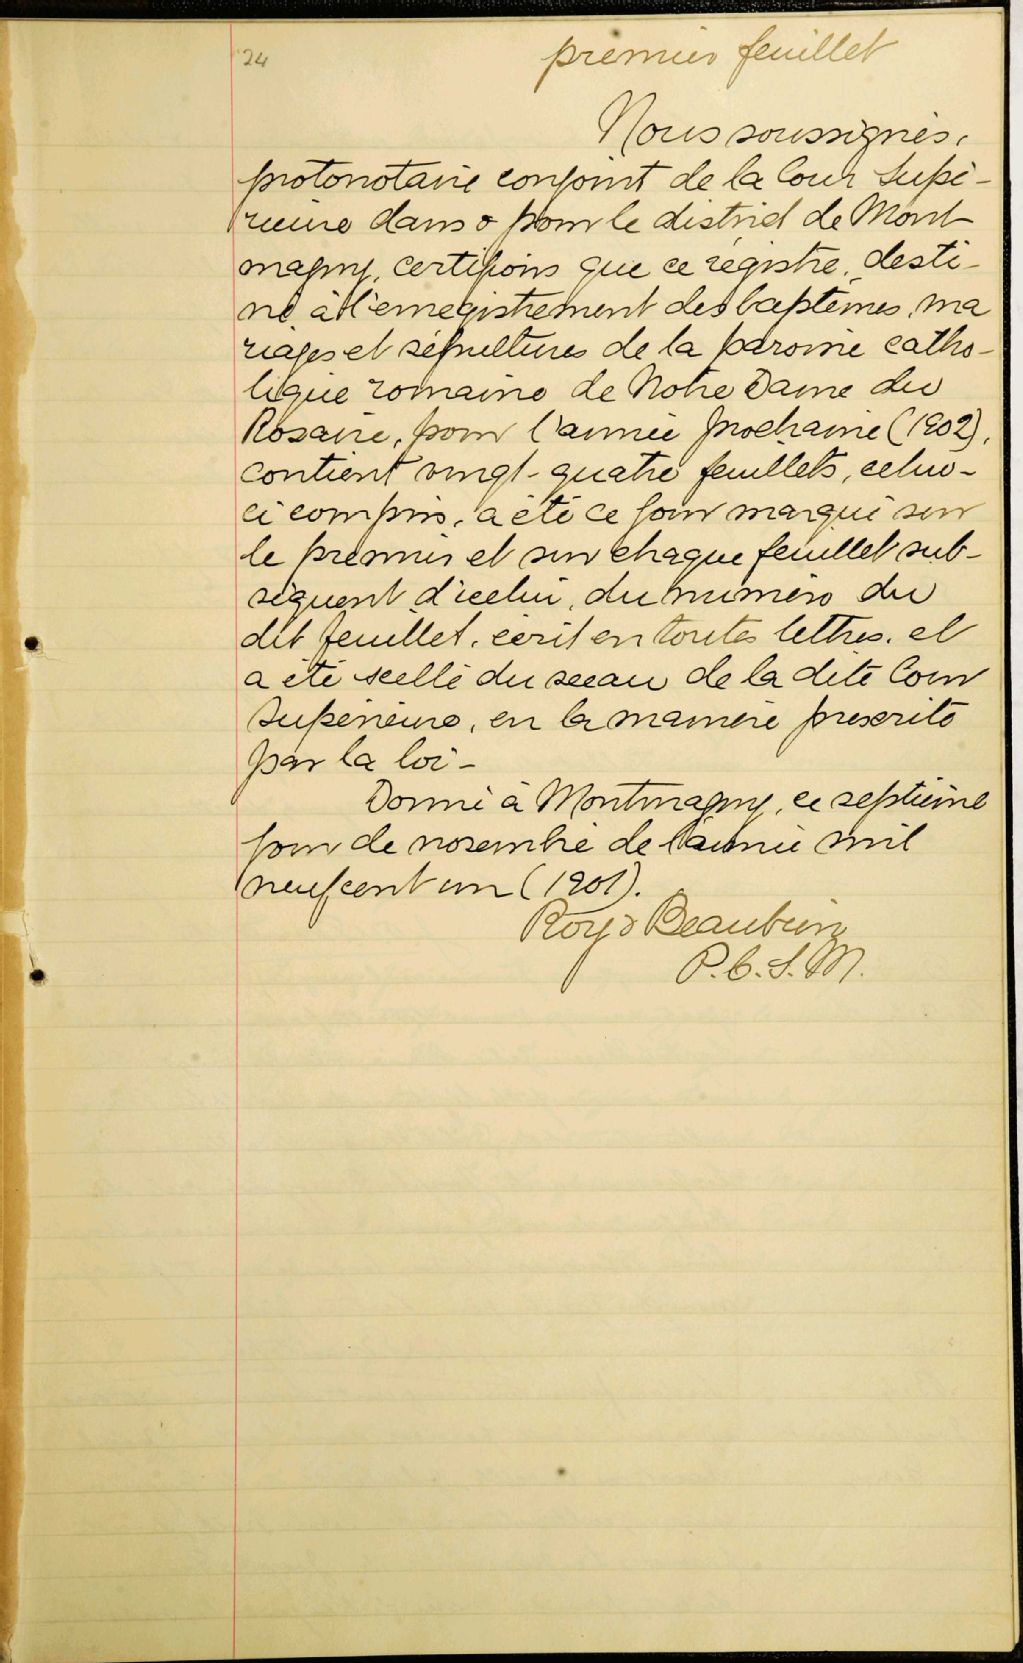 24
premier feuillet
Nous soussignés,
protonotaire conjoint de la Cour Supé-
rieure dans & pour le district de Mont
magny, certifions que ce régistre, desti-
né à l'enregistrement des baptêmes, ma
riages et sépultures de la paroisse catho-
lique romaine de Notre Dame du
Rosaire, pour l'année prochaine (1902),
contient vingt-quatre feuillets, celui-
ci compris, a été ce jour marqué sur
le premier et sur chaque feuillet sub-
séquent d'icelui, du numéro du
dit feuillet, écrit en toutes lettres, et
a été scellé du sceau de la dite Cour
Supérieure, en la manière prescrite
par la loi-
Donné à Montmagny, ce septième
jour de novembre de l'année mil
neuf cent un (1901).
Roy & Beaubien
P.C.S.M.